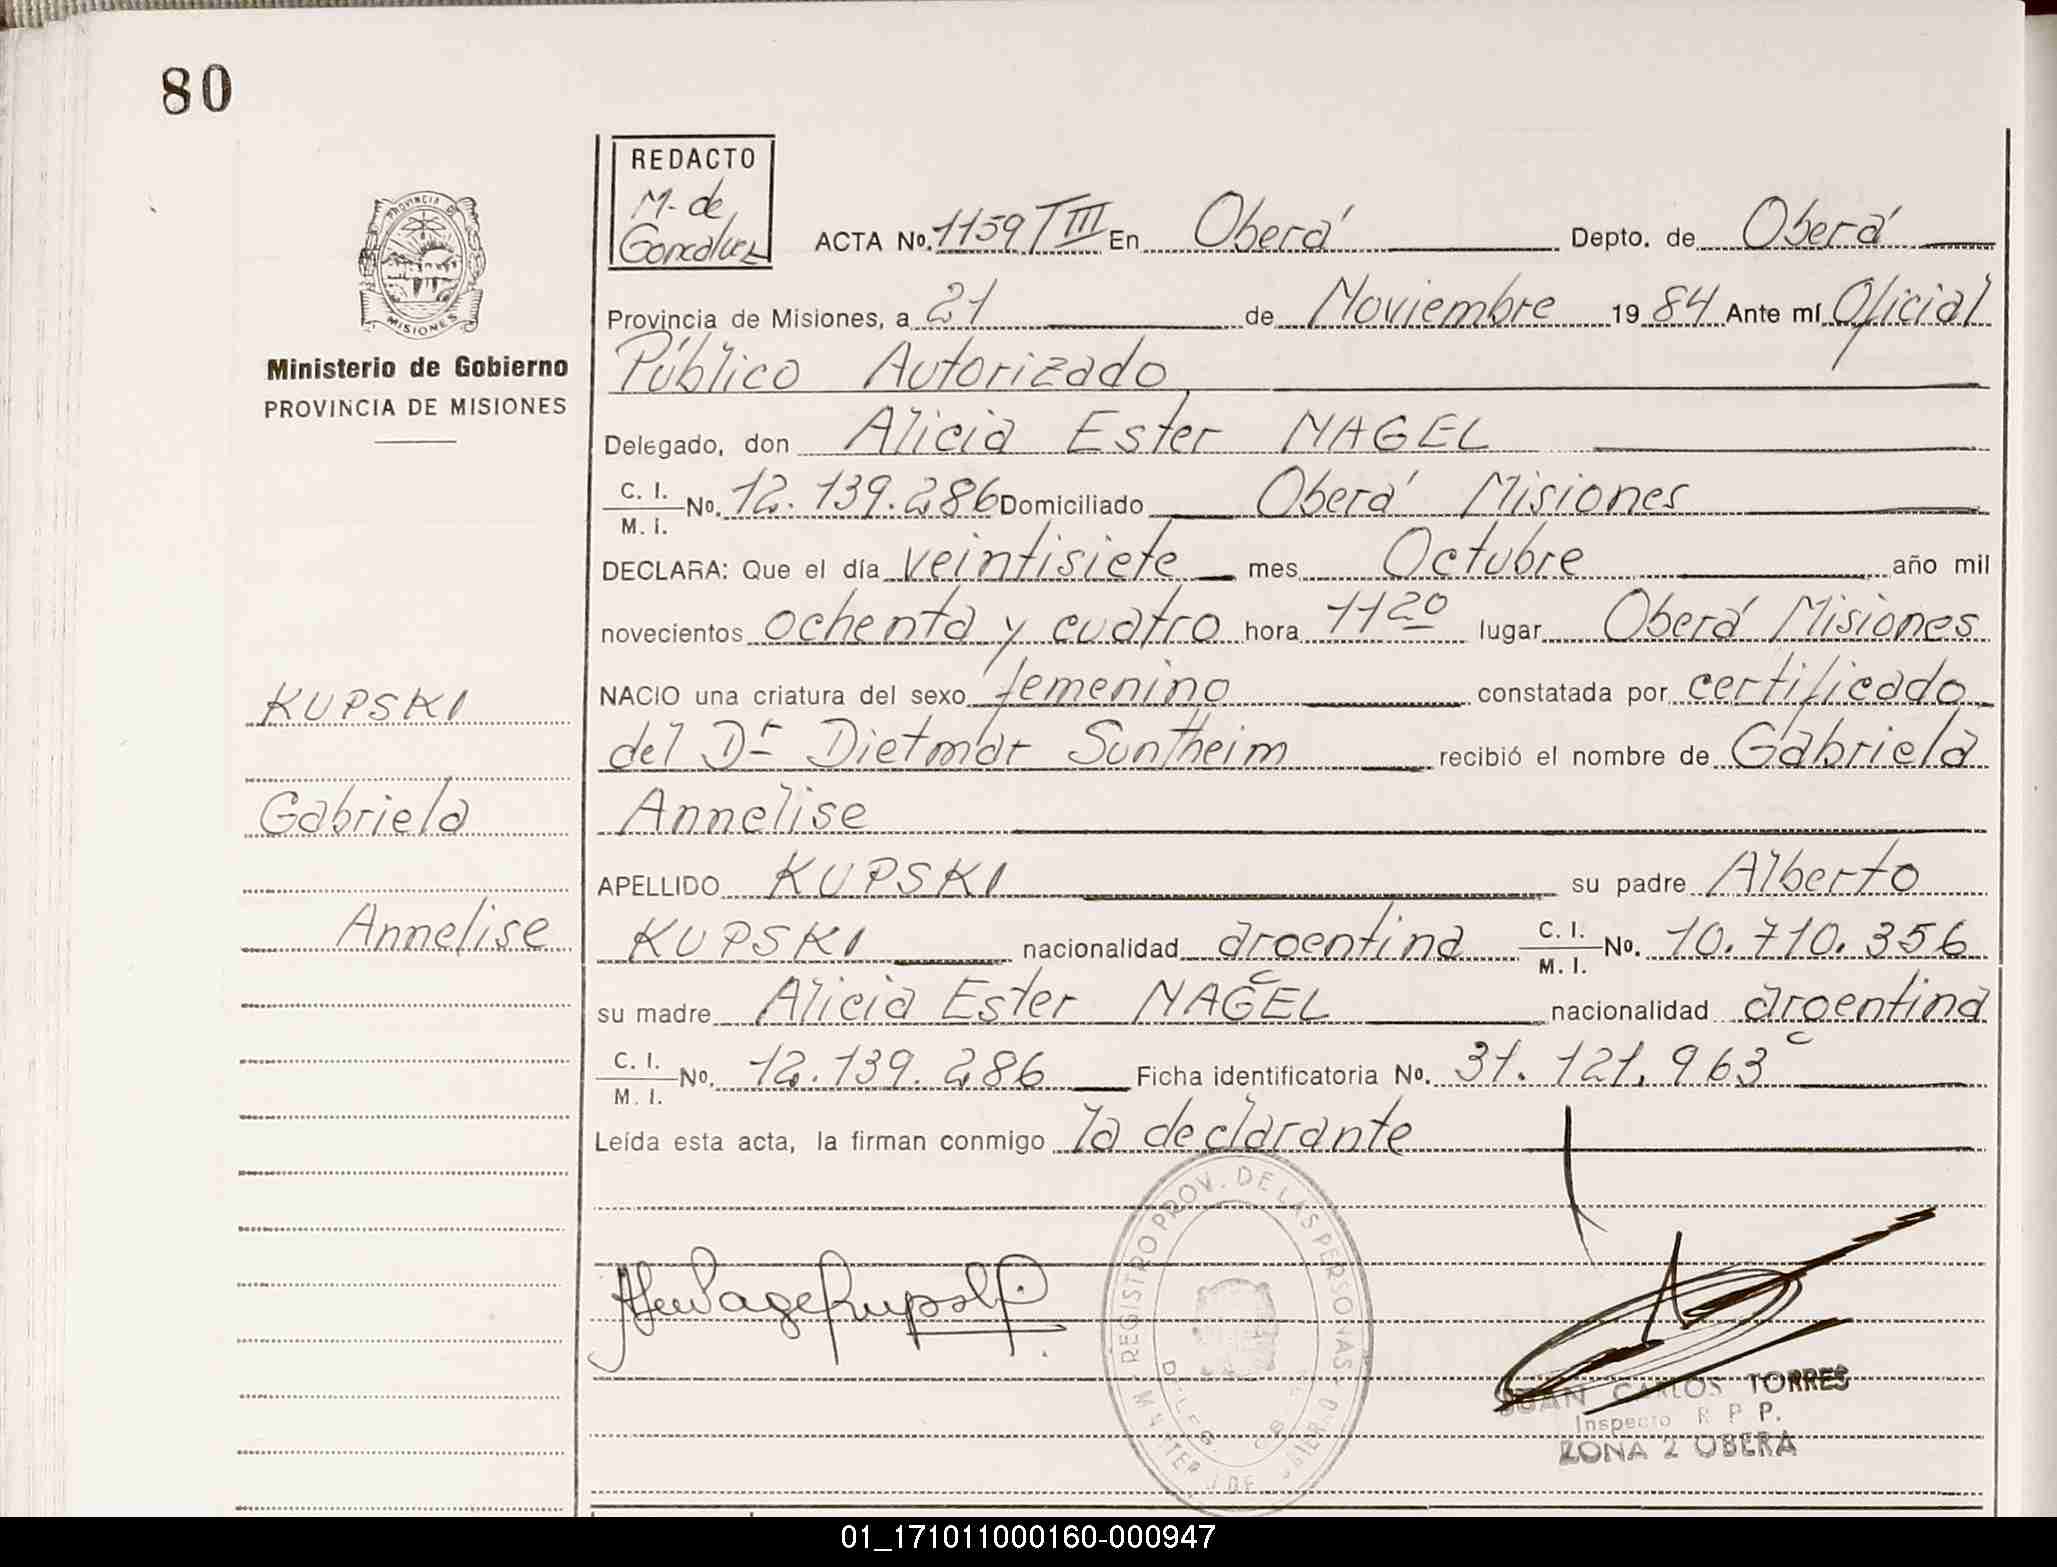 80
REDACTO
M. de
Gonzalez
ACTA No. 1159 T III En Oberá Depto. de Oberá
PROVINCIA DE
MISIONES
Provincia de Misiones, a 21 de Noviembre 1984 Ante mí Oficial
Ministerio de Gobierno
PROVINCIA DE MISIONES
Público Autorizado
Delegado, don Alicia Ester NAGEL
C. I.
M. I. No. 12.139.286 Domiciliado Oberá Misiones
DECLARA: Que el día veintisiete mes Octubre año mil
novecientos ochenta y cuatro hora 11 20 lugar Oberá Misiones
NACIO una criatura del sexo femenino constatada por certificado
del Dr Dietmar Suntheim recibió el nombre de Gabriela
Annelise
APELLIDO KUPSKI su padre Alberto
KUPSKI nacionalidad argentina C. I. M. I. No. 10.710.356
su madre Alicia Ester NAGEL nacionalidad argentina
C. I.
M. I. No. 12.139.286 Ficha identificatoria No. 31.121.963
Leída esta acta, la firman conmigo la declarante
KUPSKI
Gabriela
Annelise
REGISTRO PROV. DE LAS PERSONAS
JUAN CARLOS TORRES
Inspecto R P P.
ZONA 2 OBERA
01_171011000160-000947